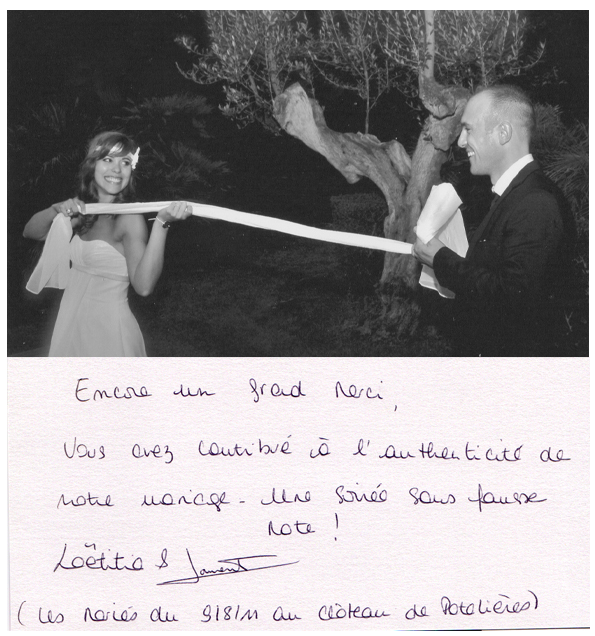 Encore un grand Merci,
Vous avez contribué à l'authenticité de
notre mariage - Une soirée sans fausse
Note !
Laëtitia & Laurent
(Les Mariés du 9/8/11 au Château de Potelières)